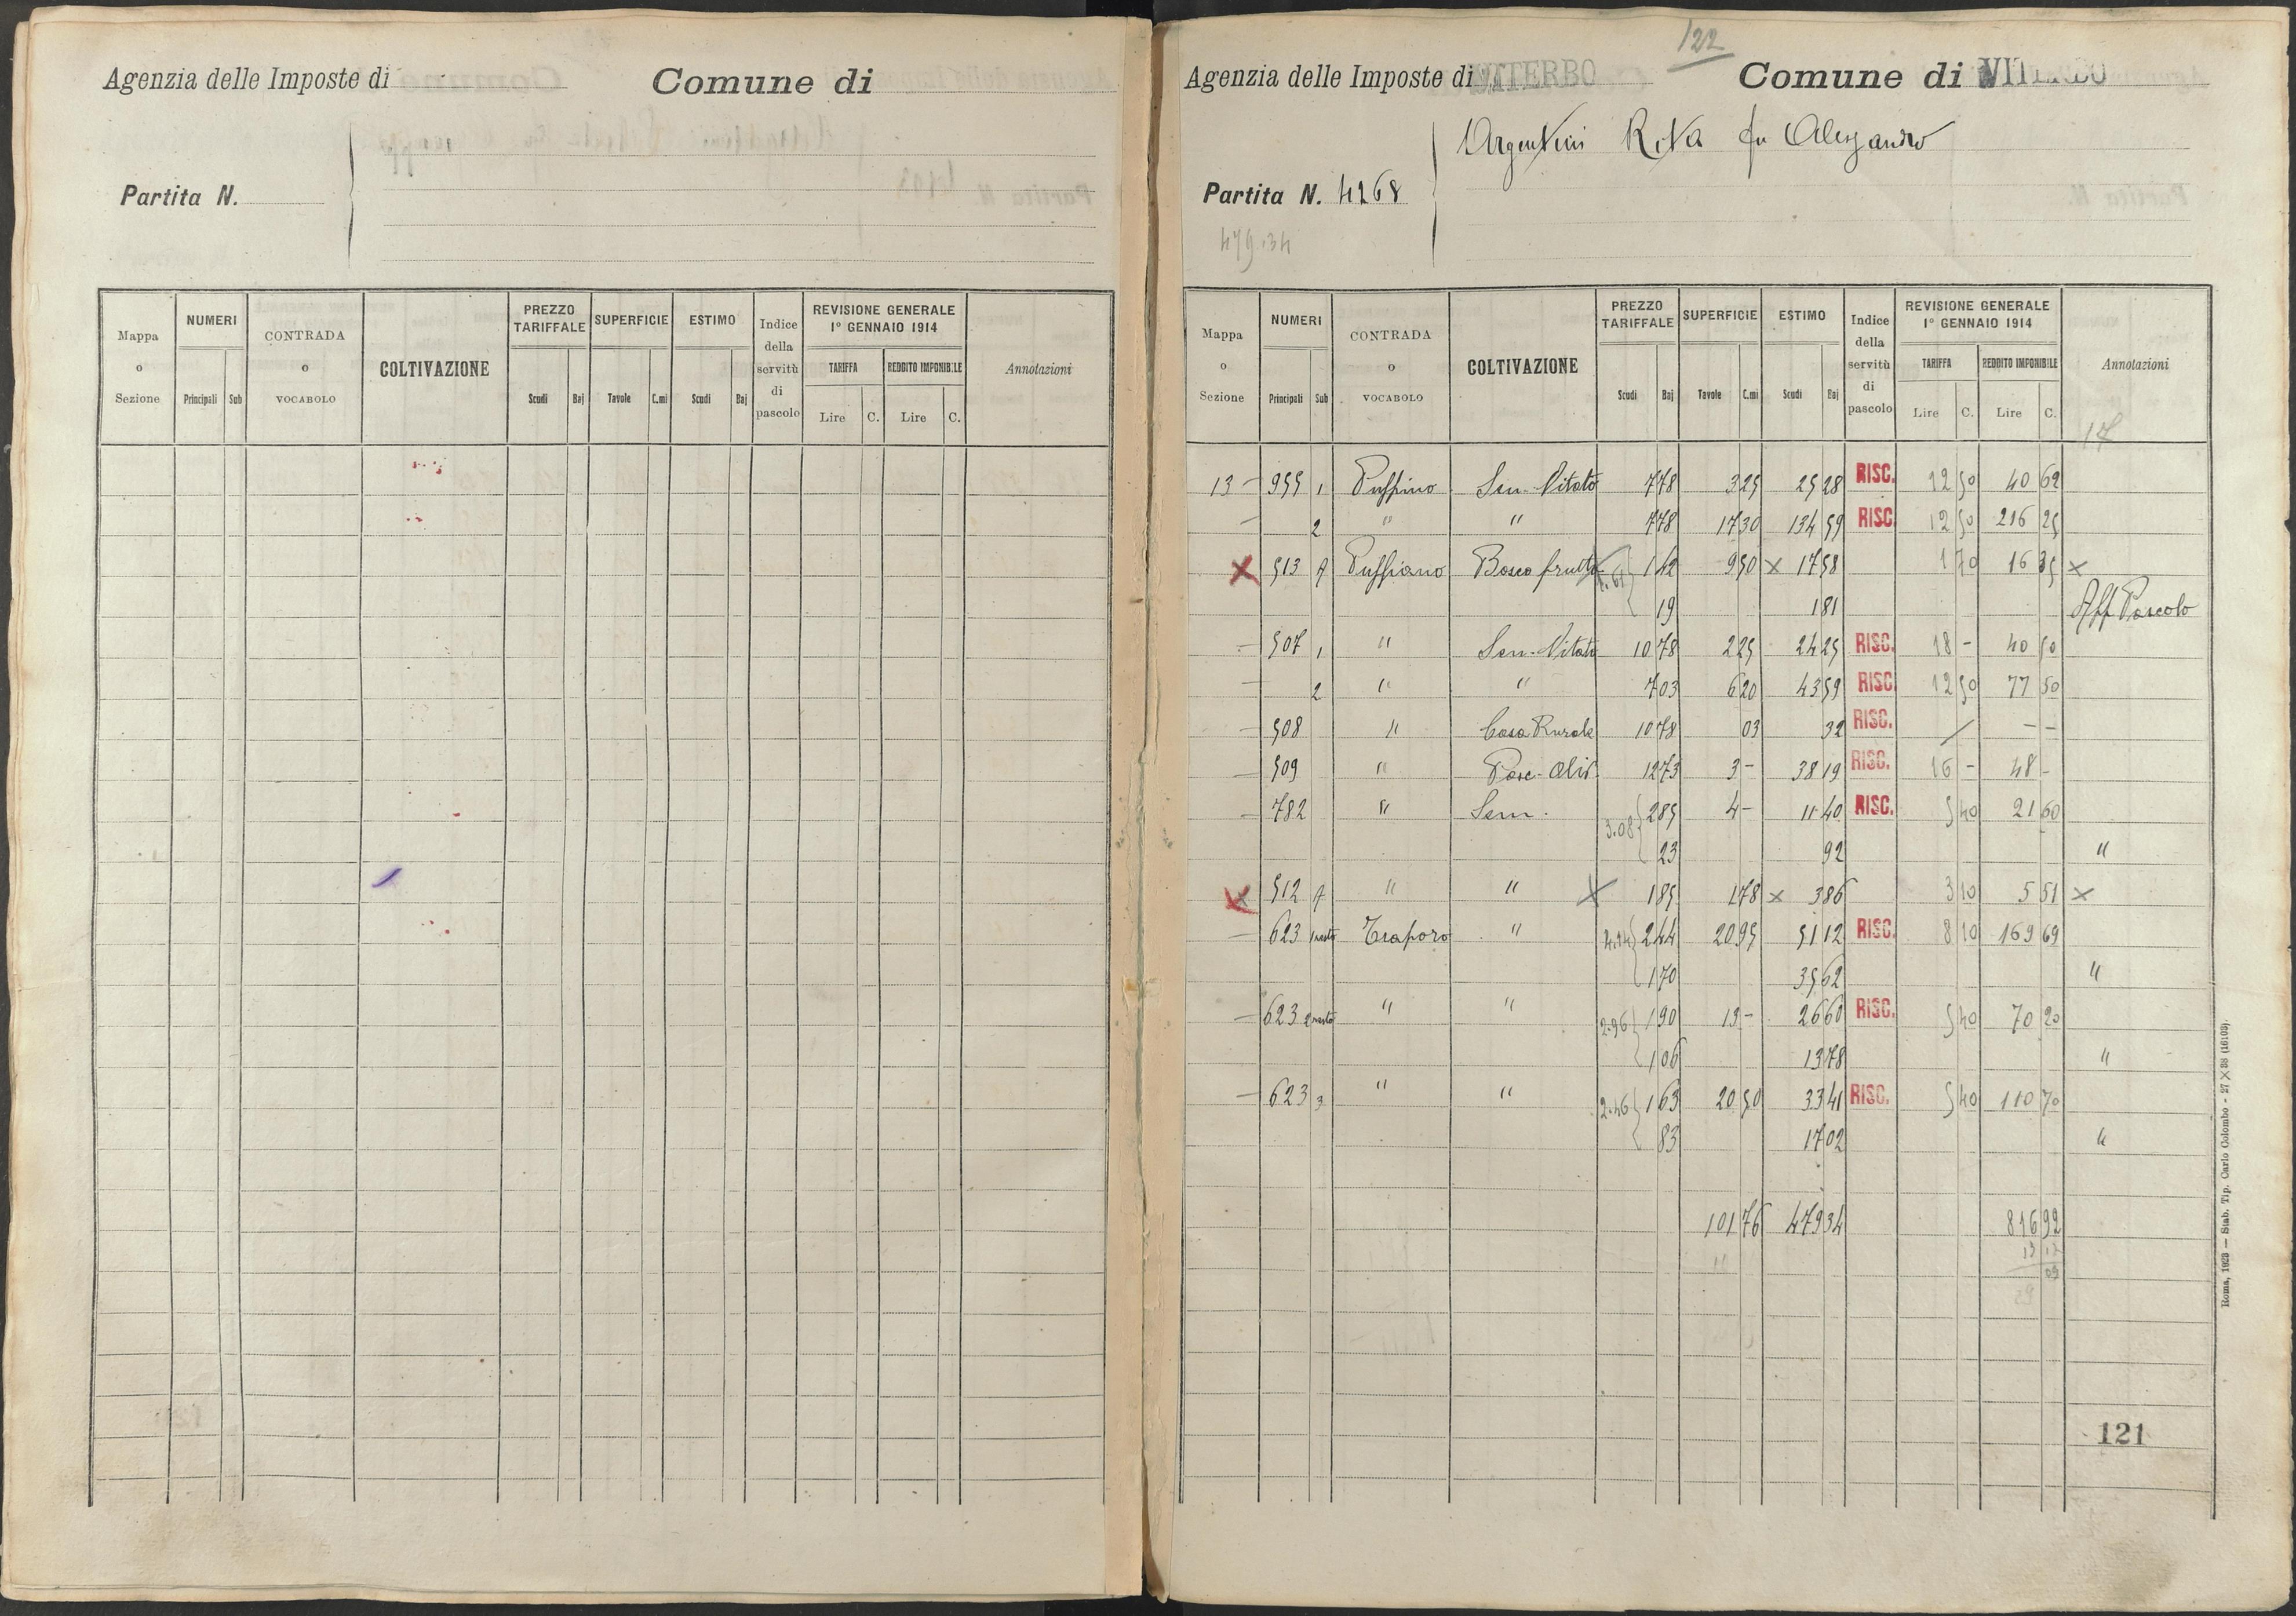 Agenzia delle Imposte di
Comune di
Partita N.
Mappa o Sezione
NUMERI
Principali Sub
CONTRADA o VOCABOLO
COLTIVAZIONE
PREZZO TARIFFALE
Scudi Baj
SUPERFICIE
Tavole C.mi
ESTIMO
Scudi Baj
Indice della servitù di pascolo
REVISIONE GENERALE 1° GENNAIO 1914
TARIFFA REDDITO IMPONIBILE
Lire C. Lire C.
Annotazioni
122
Agenzia delle Imposte di VITERBO
Comune di VITERBO
Argentini Rita fu Alessandro
Partita N. 4268
479.34
Mappa o Sezione
NUMERI
Principali Sub
CONTRADA o VOCABOLO
COLTIVAZIONE
PREZZO TARIFFALE
Scudi Baj
SUPERFICIE
Tavole C.mi
ESTIMO
Scudi Baj
Indice della servitù di pascolo
REVISIONE GENERALE 1° GENNAIO 1914
TARIFFA REDDITO IMPONIBILE
Lire C. Lire C.
Annotazioni
17
13 - 955 1 Puffino Sem. Vitato 7 78 3 25 25 28 RISC. 12 50 40 62
- 2 " " 7 78 17 30 134 59 RISC. 12 50 216 25
X 513 Puffiano Bosco frutto 1.61 { 1 42 9 50 x 17 58 1 70 16 35 x
19 1 81 Aff Pascolo
- 507 1 " Sem. Vitato 10 78 2 25 24 25 RISC. 18 - 40 50
- 2 " " 7 03 6 20 43 59 RISC. 12 50 77 50
- 508 " Casa Rurale 10 78 03 32 RISC. / - -
- 509 " Pasc. Oliv. 12 73 3 - 38 19 RISC. 16 - 48 -
- 782 " Sem. 3.08 { 2 85 4 - 11 40 RISC. 5 40 21 60
23 92 "
X 512 " " X 1 85 1 78 x 3 86 3 10 5 51 x
- 623 1 resto Traporo " 4.14 { 2 44 20 95 51 12 RISC. 8 10 169 69
1 70 35 62 "
- 623 2 resto " " 2.96 { 1 90 13 - 26 60 RISC. 5 40 70 20
1 06 13 78 "
- 623 3 " " 2.46 { 1 63 20 50 33 41 RISC. 5 40 110 70
83 17 02 "
101 76 479 34 816 92
121
Roma, 1923 — Stab. Tip. Carlo Colombo - 27 × 38 (16103).